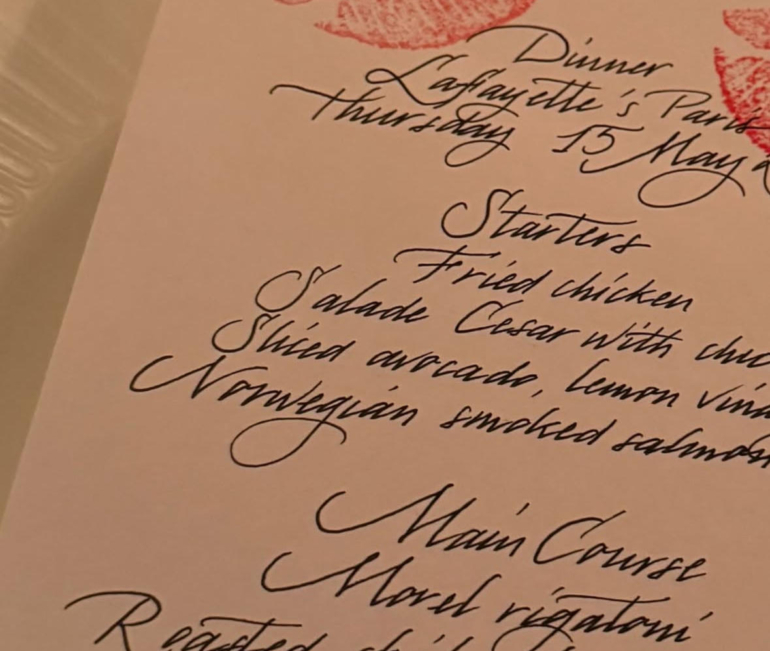 Dinner
Lafayette's Paris
Thursday 15 May
Starters
Fried chicken
Salade Cesar with
Sliced avocado, lemon
Norwegian smoked salmon
Main Course
Morel rigatoni
Roasted